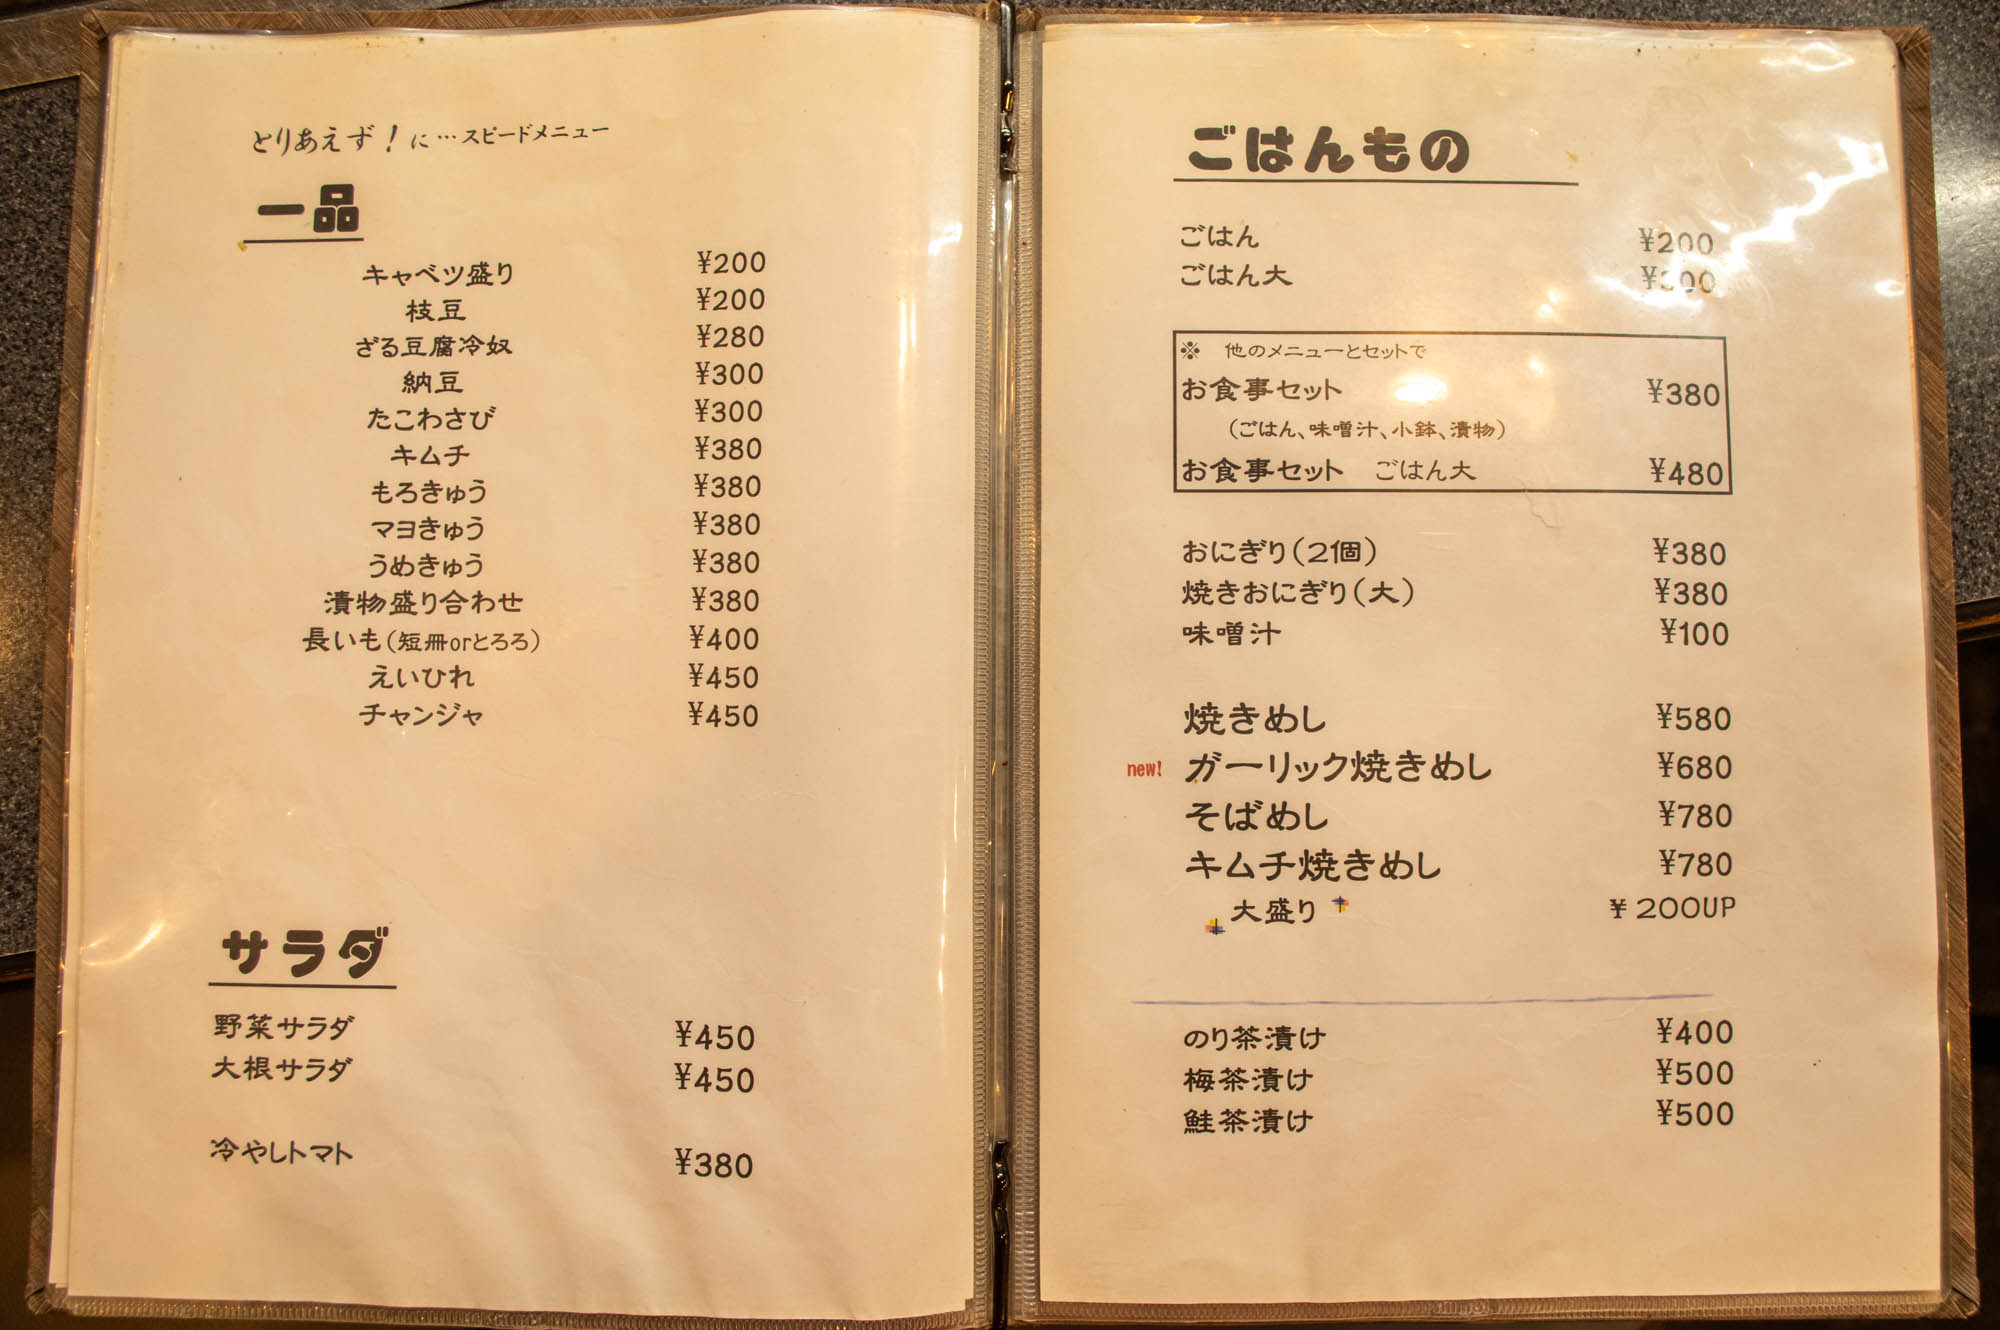 とりあえず!に…スピードメニュー
一品
キャベツ盛り ¥200
枝豆 ¥200
ざる豆腐冷奴 ¥280
納豆 ¥300
たこわさび ¥300
キムチ ¥380
もろきゅう ¥380
マヨきゅう ¥380
うめきゅう ¥380
漬物盛り合わせ ¥380
長いも(短冊orとろろ) ¥400
えいひれ ¥450
チャンジャ ¥450
サラダ
野菜サラダ ¥450
大根サラダ ¥450
冷やしトマト ¥380
ごはんもの
ごはん ¥200
ごはん大 ¥300
※ 他のメニューとセットで
お食事セット ¥380
(ごはん、味噌汁、小鉢、漬物)
お食事セット ごはん大 ¥480
おにぎり(2個) ¥380
焼きおにぎり(大) ¥380
味噌汁 ¥100
焼きめし ¥580
new! ガーリック焼きめし ¥680
そばめし ¥780
キムチ焼きめし ¥780
大盛り ¥200UP
のり茶漬け ¥400
梅茶漬け ¥500
鮭茶漬け ¥500